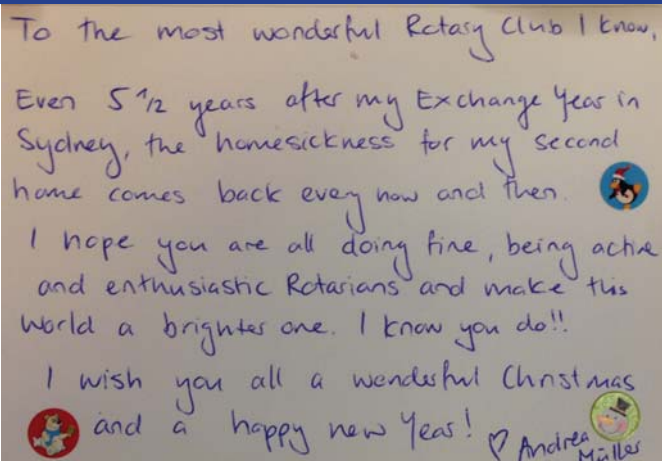 To the most wonderful Rotary Club I know,
Even 5 1/2 years after my Exchange Year in
Sydney, the homesickness for my second
home comes back every now and then.
I hope you are all doing fine, being active
and enthusiastic Rotarians and make this
world a brighter one. I know you do!!
I wish you all a wonderful Christmas
and a happy new Year! ♡ Andrea
Müller